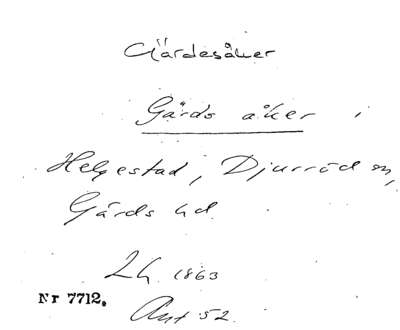 Gärdesåker
Gärds åker i
Helgestad, Djurröd sn,
Gärds hd.
Lh. 1863
Nr 7712.
Ant 52.